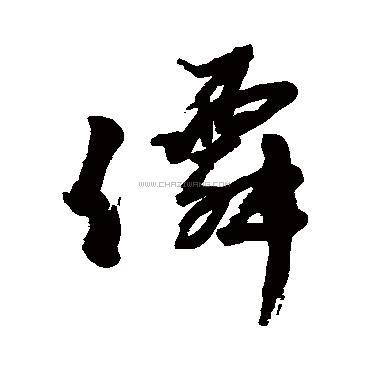 儛
WWW.CHAZIWANG.COM